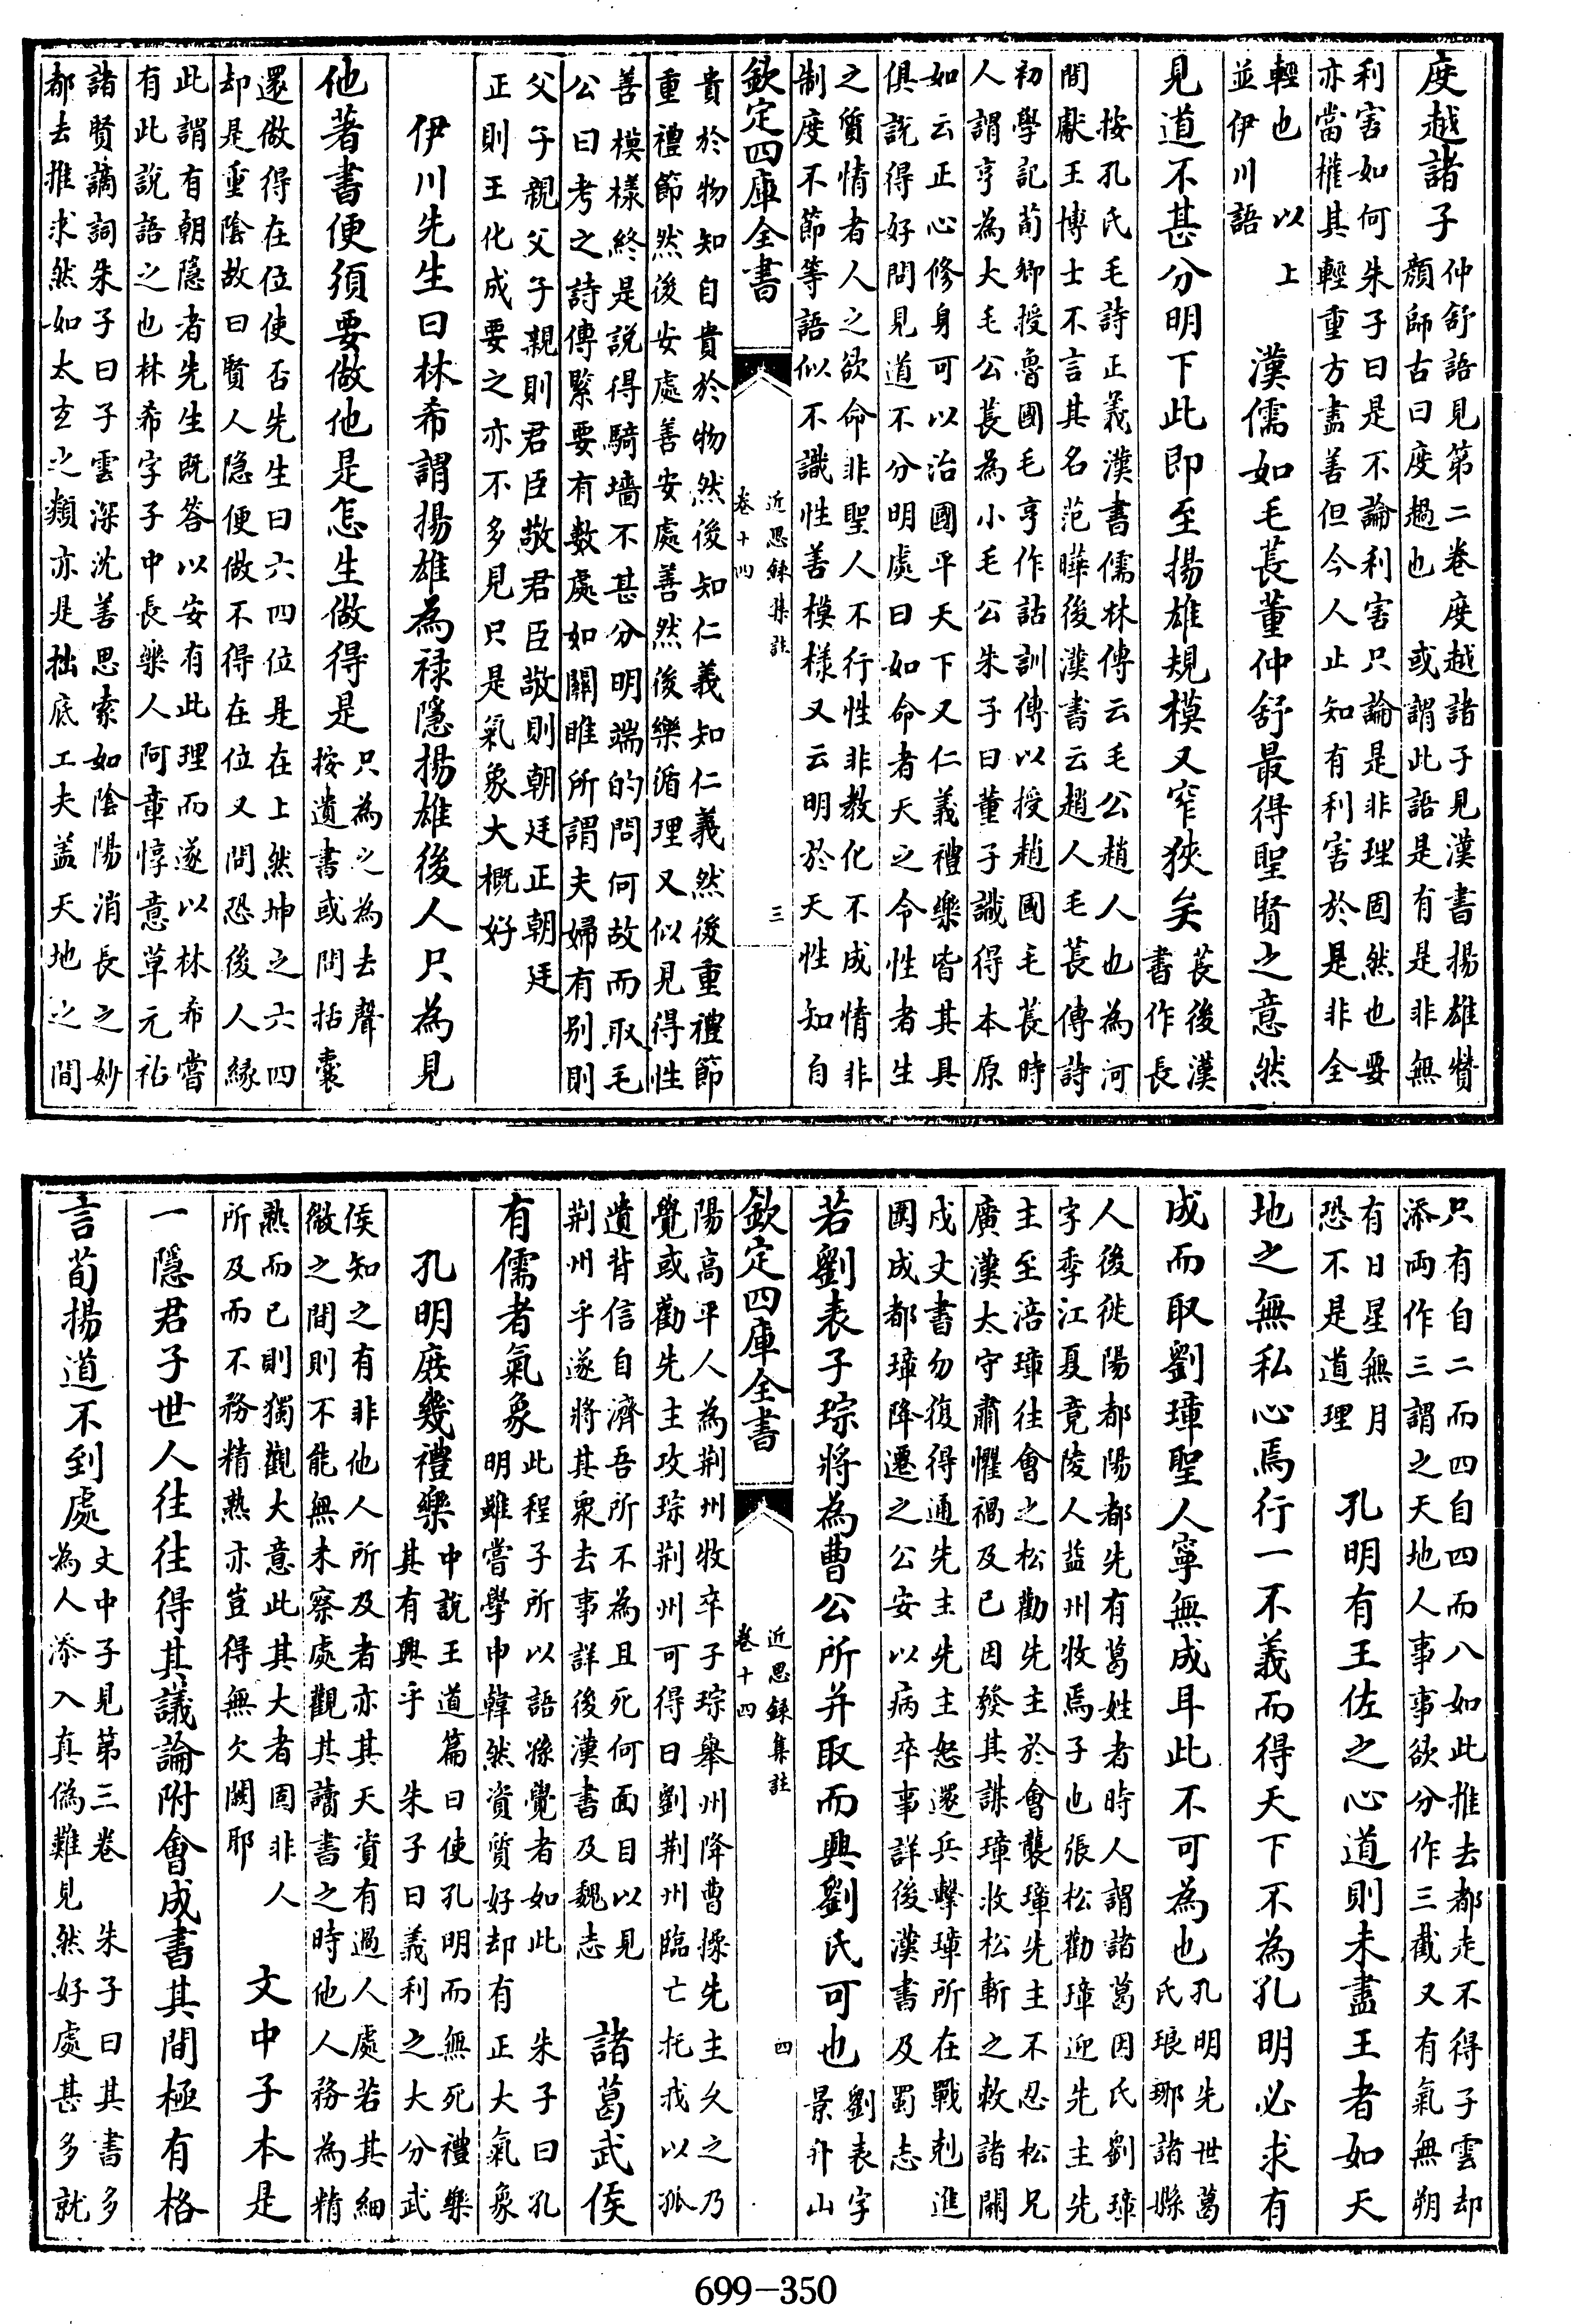 度越諸子仲舒語見第二卷度越諸子見漢書揚雄賛
顔師古曰度過也或謂此語是有是非無
利害如何朱子曰是不論利害只論是非理固然也要
亦當權其輕重方盡善但今人止知有利害於是非全
輕也以上
並伊川語
漢儒如毛萇董仲舒最得聖賢之意然
見道不甚分明下此即至揚雄規模又窄狹矣萇後漢
書作長
按孔氏毛詩正義漢書儒林傳云毛公趙人也為河
間獻王博士不言其名范曄後漢書云趙人毛萇傳詩
初學記荀卿授魯國毛亨作詁訓傳以授趙國毛萇時
人謂亨為大毛公萇為小毛公朱子曰董子識得本原
如云正心修身可以治國平天下又仁義禮樂皆其具
俱說得好問見道不分明處曰如命者天之令性者生
之質情者人之欲命非聖人不行性非教化不成情非
制度不節等語似不識性善模樣又云明於天性知自
欽定四庫全書
近思錄集註
卷十四
三
貴於物知自貴於物然後知仁義知仁義然後重禮節
重禮節然後安處善安處善然後樂循理又似見得性
善模樣終是說得騎墻不甚分明端的問何故而取毛
公曰考之詩傳緊要有數處如關雎所謂夫婦有别則
父子親父子親則君臣敬君臣敬則朝廷正朝廷
正則王化成要之亦不多見只是氣象大概好
伊川先生曰林希謂揚雄為禄隱揚雄後人只為見
他著書便須要做他是怎生做得是只為之為去聲
按遺書或問括囊
還做得在位使否先生曰六四位是在上然坤之六四
却是重陰故曰賢人隱便做不得在位又問恐後人縁
此謂有朝隱者先生既答以安有此理而遂以林希嘗
有此說語之也林希字子中長樂人阿章惇意草元祐
諸賢謫詞朱子曰子雲深沈善思索如陰陽消長之妙
都去推求然如太玄之類亦是拙底工夫盖天地之間
只有自二而四自四而八如此推去都走不得子雲却
添兩作三謂之天地人事事欲分作三截又有氣無朔
有日星無月
恐不是道理
孔明有王佐之心道則未盡王者如天
地之無私心焉行一不義而得天下不為孔明必求有
成而取劉璋聖人寧無成耳此不可為也孔明先世葛
氏琅琊諸縣
人後徙陽都陽都先有葛姓者時人謂諸葛因氏劉璋
字季江夏竟陵人益州牧焉子也張松勸璋迎先主先
主至涪璋往會之松勸先主於會襲璋先主不忍松兄
廣漢太守肅懼禍及已因發其謀璋收松斬之敕諸關
戍文書勿復得通先主先主怒還兵擊璋所在戰剋進
圍成都璋降遷之公安以病卒事詳後漢書及蜀志
若劉表子琮將為曹公所并取而興劉氏可也劉表字
景升山
欽定四庫全書
近思錄集註
卷十四
四
陽高平人為荆州牧卒子琮舉州降曹操先主久之乃
覺或勸先主攻琮荆州可得曰劉荆州臨亡托我以孤
遺背信自濟吾所不為且死何面目以見
荆州乎遂將其衆去事詳後漢書及魏志
諸葛武侯
有儒者氣象此程子所以語孫覺者如此朱子曰孔
明雖嘗學申韓然資質好却有正大氣象
孔明庶幾禮樂中說王道篇曰使孔明而無死禮樂
其有興乎朱子曰義利之大分武
侯知之有非他人所及者亦其天資有過人處若其細
微之間則不能無未察處觀其讀書之時他人務為精
熟而已則獨觀大意此其大者固非人
所及而不務精熟亦豈得無欠闕耶
文中子本是
一隱君子世人往往得其議論附會成書其間極有格
言荀揚道不到處文中子見第三卷朱子曰其書多
為人添入真偽難見然好處甚多就
699-350